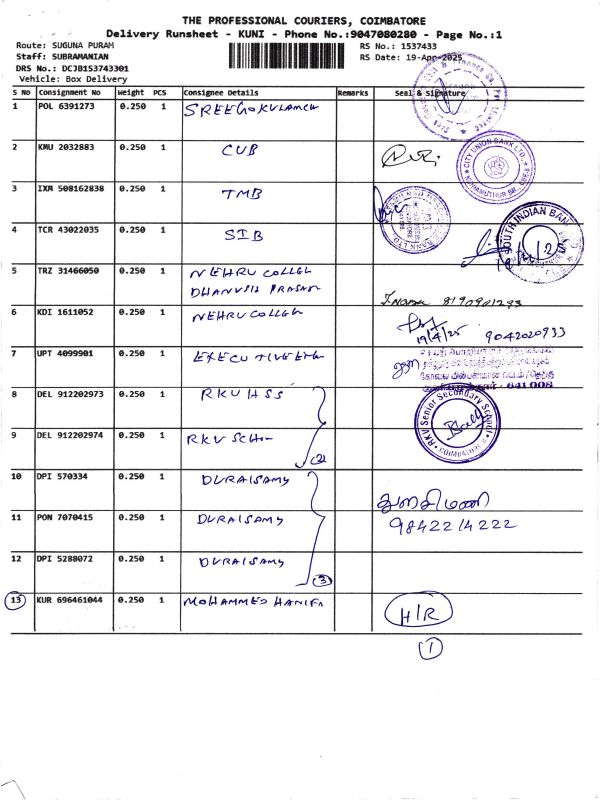 THE PROFESSIONAL COURIERS, COIMBATORE
Delivery Runsheet - KUNI - Phone No.:9047080280 - Page No.:1
Route: SUGUNA PURAM
Staff: SUBRAMANIAN
DRS No.: DCJB153743301
Vehicle: Box Delivery
RS No.: 1537433
RS Date: 19-Apr-2025
S No Consignment No Weight PCS Consignee Details Remarks Seal & Signature
1 POL 6391273 0.250 1 SREEGOKULAMCH
2 KMU 2032883 0.250 1 CUB CITY UNION BANK LTD.
3 IXM 508162838 0.250 1 TMB
4 TCR 43022035 0.250 1 SIB SOUTH INDIAN BANK
5 TRZ 31466050 0.250 1 NEHRU COLLEGE
DHANUSH PRASAN 8190901293
6 KDI 1611052 0.250 1 NEHRU COLLEGE 19/4/25 9042020933
7 UPT 4099901 0.250 1 EXECUTIVE ENG 641 008
8 DEL 912202973 0.250 1 RKV HSS RKV Senior Secondary School
COIMBATORE
9 DEL 912202974 0.250 1 RKV SCH (2)
10 DPI 570334 0.250 1 DURAISAMY துளசிமணி
11 PON 7070415 0.250 1 DURAISAMY 9842214222
12 DPI 5288072 0.250 1 DURAISAMY (3)
13 KUR 696461044 0.250 1 MOHAMMED HANIFA H/R
1